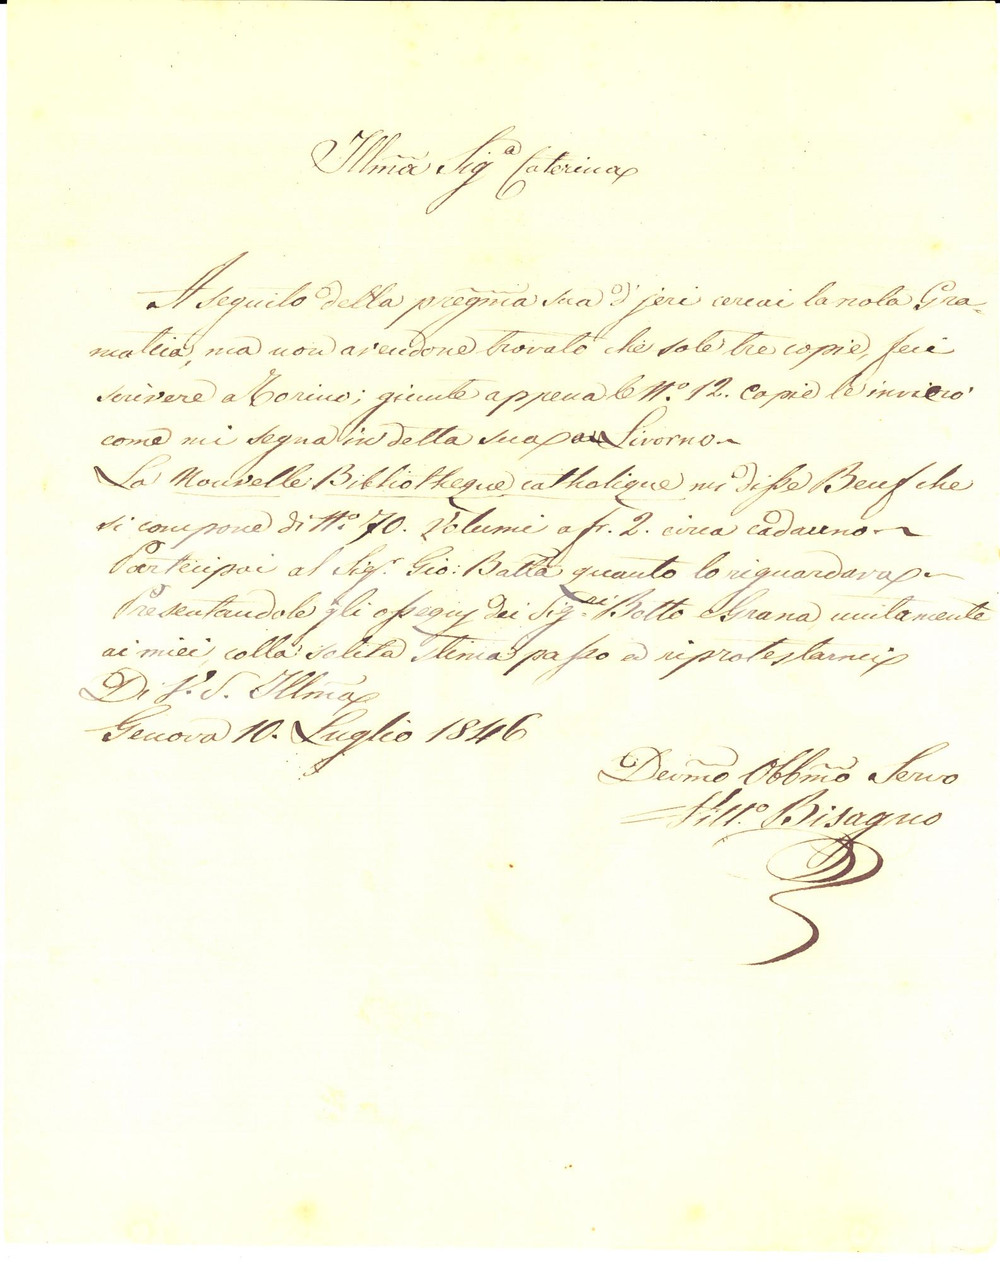 Illma Sig.a Caterina
A seguito della pregma sua d'jeri cercai la nota Gra-
matica, ma non avendone trovato che sole tre copie, feci
scrivere a Torino; giunte appena le N.o 12. copie le invierò
come mi segna in detta sua a Livorno
La Nouvelle Bibliotheque catholique mi disse Beuf che
si compone di N.o 70. Volumi a fr. 2. circa cadauno
Partecipai al Sig.r Gio: Batta quanto lo riguardava
Presentandole gli ossequj dei Sig.ri Botto e Grana, unitamente
ai miei, colla solita stima passo a riprotestarmi
Di V. S. Illma
Genova 10. Luglio 1846
Devmo Obblmo Servo
Bisagno